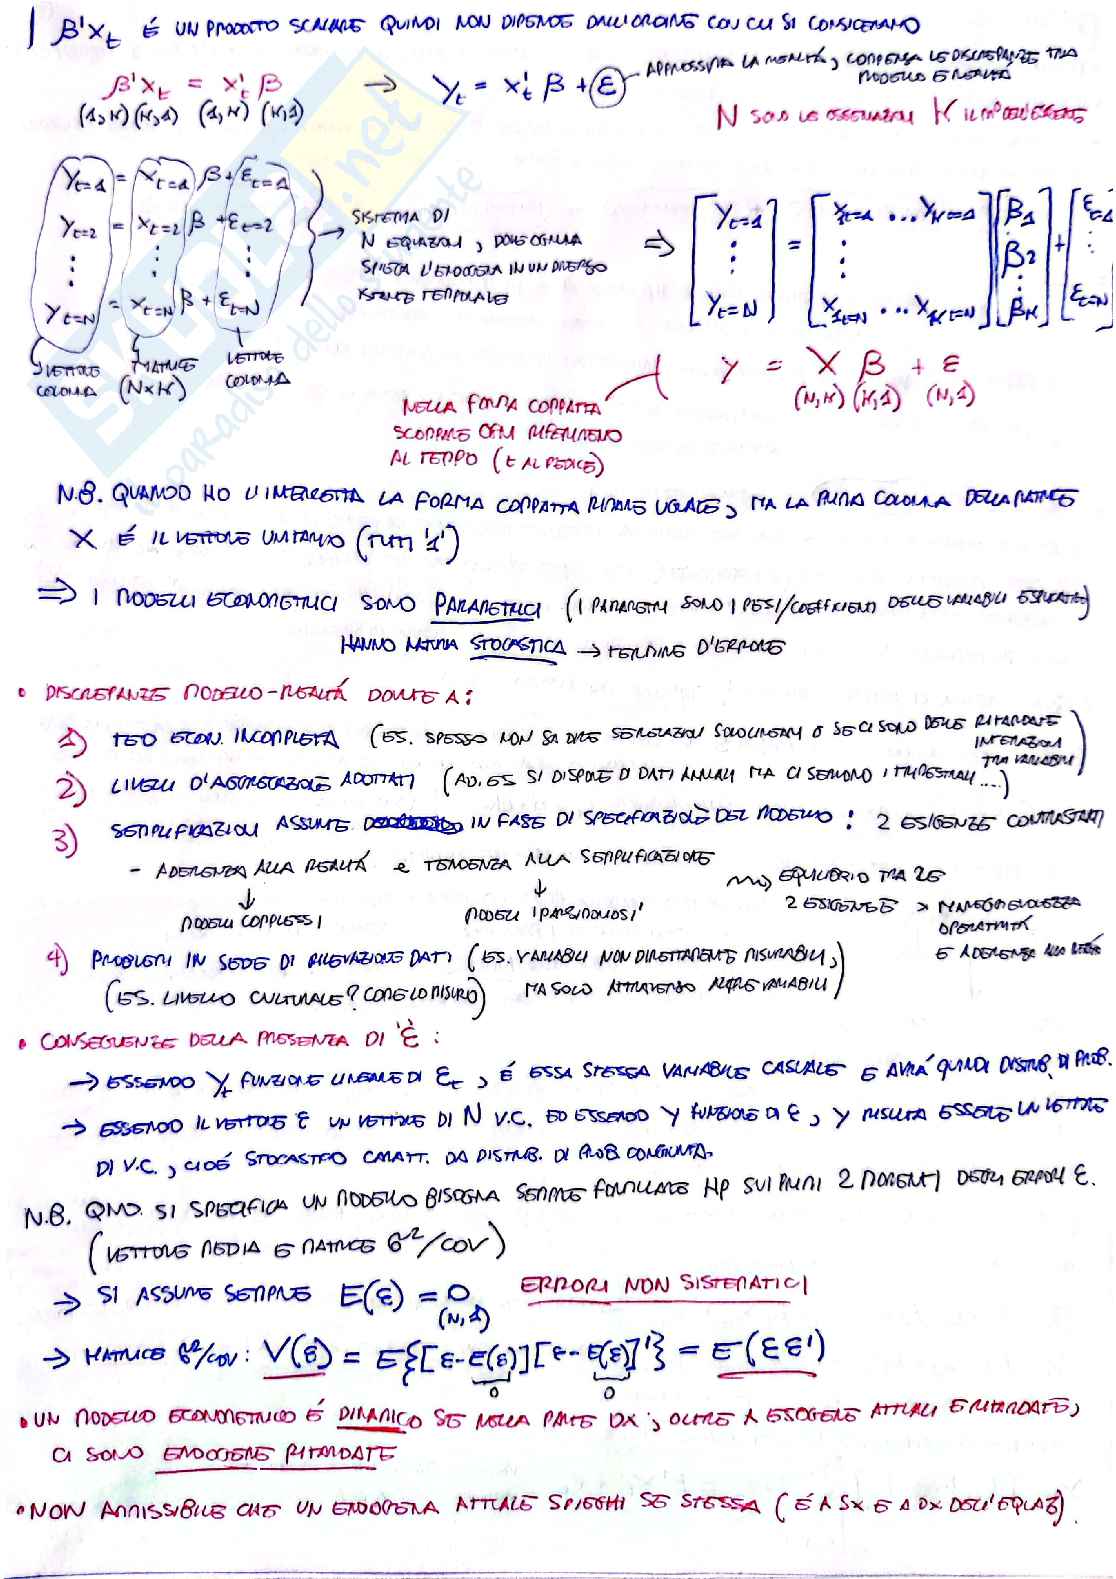 β'Xt É UN PRODOTTO SCALARE QUINDI NON DIPENDE DALL'ORDINE CON CUI SI CONSIDERANO
β'Xt = X't β → Yt = X't β + ε APPROSSIMA LA REALTÁ, COMPENSA LE DISCREPANZE TRA MODELLO E REALTÀ
(1,K) (K,1) (1,K) (K,1)
N SONO LE OSSERVAZIONI K IL N° DELL'ESOGENE
Yt=1 = Xt=1 β + εt=1
Yt=2 = Xt=2 β + εt=2
⋮ ⋮ ⋮
Yt=N = Xt=N β + εt=N
VETTORE COLONNA
MATRICE (N×K)
VETTORE COLONNA
→ SISTEMA DI
N EQUAZIONI, DOVE OGNUNA
SPIEGA L'ENDOGENA IN UN DIVERSO
ISTANTE TEMPORALE
⇒ [Yt=1 ⋮ Yt=N] = [X1t=1 ... XKt=1 ⋮ ⋮ X1t=N ... XKt=N] [β1 β2 ⋮ βK] + [εt=1 ⋮ εt=N]
Y = X β + ε
(N,K) (K,1) (N,1)
NELLA FORMA COMPATTA
SCOMPARE OGNI RIFERIMENTO
AL TEMPO (t AL PEDICE)
N.B. QUANDO HO L'INTERCETTA LA FORMA COMPATTA RIMANE UGUALE, MA LA PRIMA COLONNA DELLA MATRICE
X É IL VETTORE UNITARIO (TUTTI '1')
⇒ I MODELLI ECONOMETRICI SONO PARAMETRICI (I PARAMETRI SONO I PESI/COEFFICIENTI DELLE VARIABILI ESPLICATIVE)
HANNO NATURA STOCASTICA → TERMINE D'ERRORE
• DISCREPANZE MODELLO-REALTÁ DOVUTE A:
1) TEO ECON. INCOMPLETA (ES. SPESSO NON SA DIRE SE RELAZIONI SOLO LINEARI O SE CI SONO DELLE RITARDATE INTERAZIONI TRA VARIABILI)
2) LIVELLI D'AGGREGAZIONE ADOTTATI (AD. ES SI DISPONE DI DATI ANNUALI MA CI SERVONO I TRIMESTRALI ....)
3) SEMPLIFICAZIONI ASSUNTE IN FASE DI SPECIFICAZIONE DEL MODELLO: 2 ESIGENZE CONTRASTANTI
- ADERENZA ALLA REALTÁ e TENDENZA ALLA SEMPLIFICAZIONE
↓ MODELLI COMPLESSI
↓ MODELLI 'PARSIMONIOSI'
→ EQUILIBRIO TRA LE
2 ESIGENZE > MANEGGEVOLEZZA
OPERATIVITÁ
E ADERENZA ALLA REALTÀ
4) PROBLEMI IN SEDE DI RILEVAZIONE DATI (ES. VARIABILI NON DIRETTAMENTE MISURABILI,
MA SOLO ATTRAVERSO ALTRE VARIABILI)
(ES. LIVELLO CULTURALE? COME LO MISURO)
• CONSEGUENZE DELLA PRESENZA DI 'ε':
→ ESSENDO Yt FUNZIONE LINEARE DI εt, É ESSA STESSA VARIABILE CASUALE E AVRÁ QUINDI DISTRIB. DI PROB.
→ ESSENDO IL VETTORE ε UN VETTORE DI N V.C. ED ESSENDO Y FUNZIONE DI ε, Y RISULTA ESSERE UN VETTORE
DI V.C., CIOÉ STOCASTICO CARATT. DA DISTRIB. DI PROB. CONGIUNTA.
N.B. QND. SI SPECIFICA UN MODELLO BISOGNA SEMPRE FORMULARE HP SUI PRIMI 2 MOMENTI DEGLI ERRORI ε.
(VETTORE MEDIA E MATRICE σ²/COV)
→ SI ASSUME SEMPRE E(ε) = 0 ERRORI NON SISTEMATICI
(N,1)
→ MATRICE σ²/COV: V(ε) = E{[ε-E(ε)][ε-E(ε)]'} = E(εε')
0 0
• UN MODELLO ECONOMETRICO É DINAMICO SE NELLA PARTE DX, OLTRE A ESOGENE ATTUALI E RITARDATE,
CI SONO ENDOGENE RITARDATE
• NON AMMISSIBILE CHE UN ENDOGENA ATTUALE SPIEGHI SE STESSA (É A SX E A DX DELL'EQUAZ).